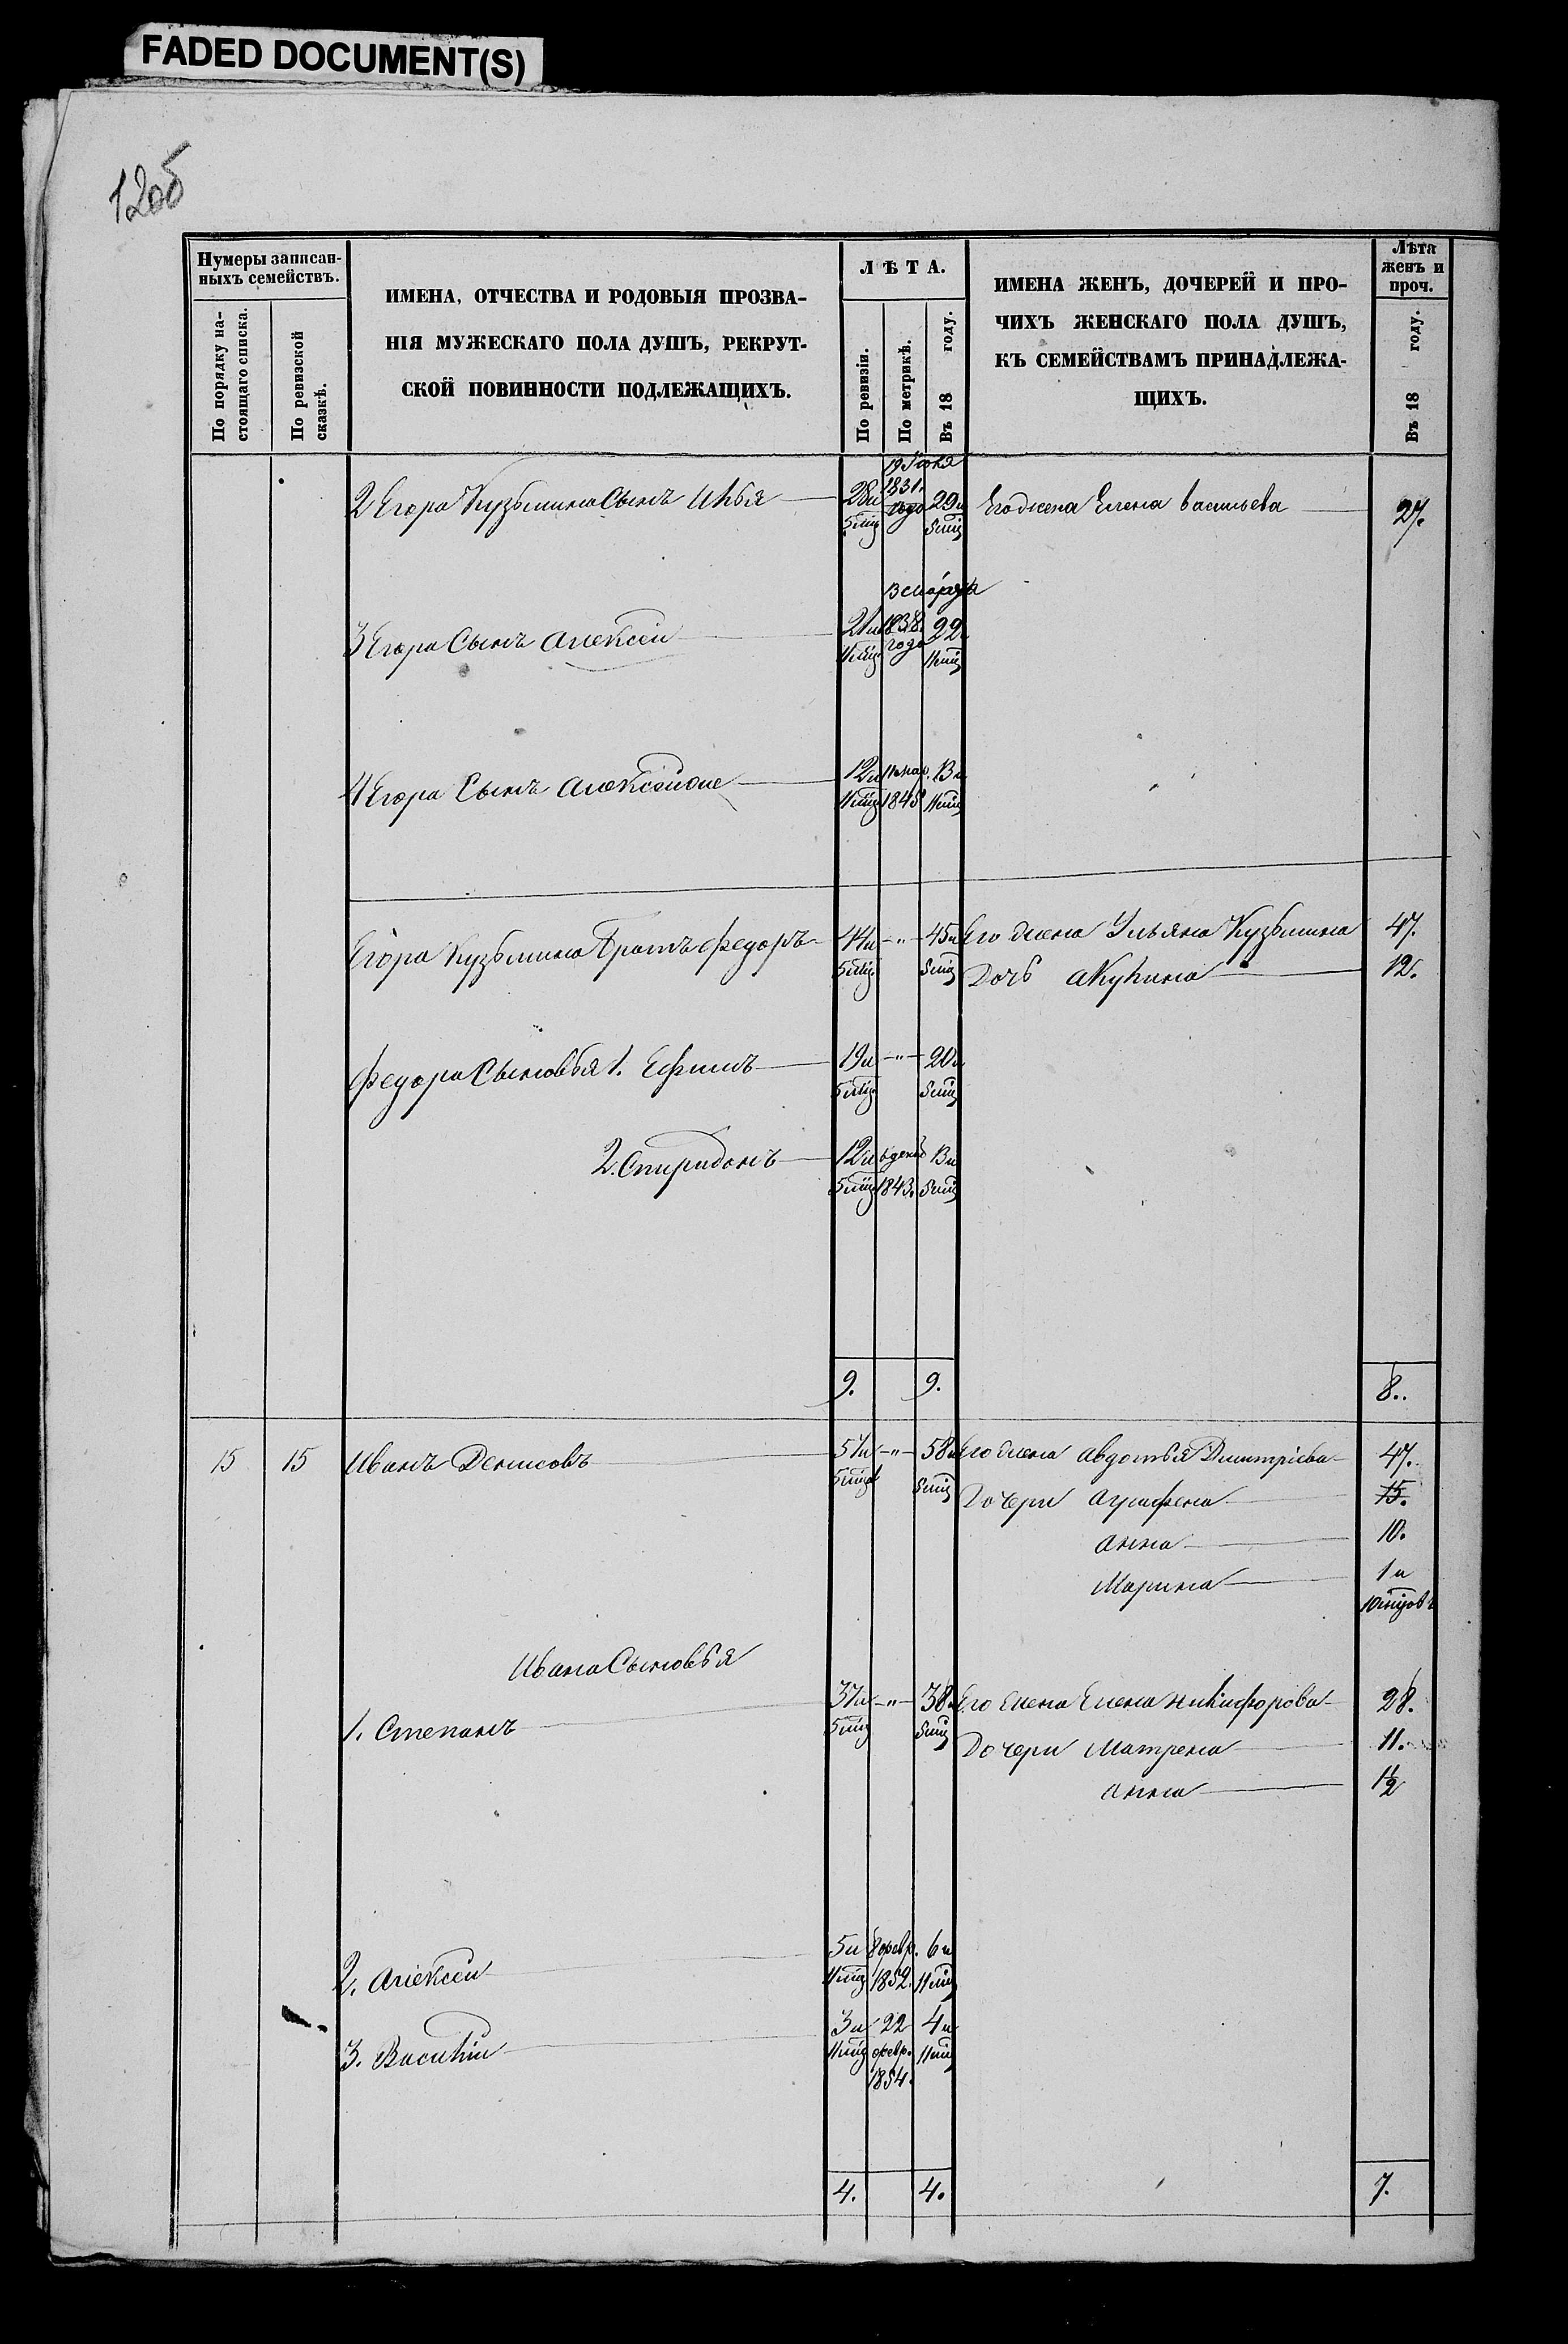 FADED DOCUMENT(S)
12об
Нумеры записан-
ныхъ семействъ.
По порядку на-
стоящаго списка.
По ревизской
сказкѣ.
ИМЕНА, ОТЧЕСТВА И РОДОВЫЯ ПРОЗВА-
НІЯ МУЖЕСКАГО ПОЛА ДУШЪ, РЕКРУТ-
СКОЙ ПОВИННОСТИ ПОДЛЕЖАЩИХЪ.
ЛѢТА.
По ревизіи.
По метрикѣ.
Въ 18 году.
ИМЕНА ЖЕНЪ, ДОЧЕРЕЙ И ПРО-
ЧИХЪ ЖЕНСКАГО ПОЛА ДУШЪ,
КЪ СЕМЕЙСТВАМЪ ПРИНАДЛЕЖА-
ЩИХЪ.
Лѣта
женъ и
проч.
Въ 18 году.
2 Егора Кузьмина Сынъ Илья 28 и 5 мцъ 1831. года 29 и 5 мцъ Его жена Елена васильева 27.
3 Егора Сынъ Алексѣй 21 и 11 мцъ 1838. года 22 11 мцъ
4 Егора Сынъ Алексѣй 12 и 11 мцъ 1845 13 и 11 мцъ
Егора Кузьмина Братъ Федоръ 44 и 5 мцъ -"- 45 и 5 мцъ Его жена Ульяна Кузьмина 47.
Дочь акулина 12.
Федора Сыновья 1. Ефимъ 19 и 5 мцъ -"- 20 и 5 мцъ
2. Спиридонъ 12 и 5 мцъ 1843. 13 и 5 мцъ
9. 9. 8.
15 15 Иванъ Денисовъ 57 и 5 мцъ -"- 58 и 5 мцъ Его жена авдотья Дмитріева 47.
Дочери Аграфена 15.
анна 10.
Марина 1 и
10 мцовъ
Ивана Сыновья
1. Степанъ 37 и 5 мцъ -"- 38 и 5 мцъ Его жена Елена никифорова 28.
Дочери Матрена 11.
анна 1½
2. Алексѣй 5 и 11 мцъ 8 февр. 1852. 6 и 11 мцъ
3. Василій 3 и 11 мцъ 22 февр. 1854. 4 и 11 мцъ
4. 4. 7.